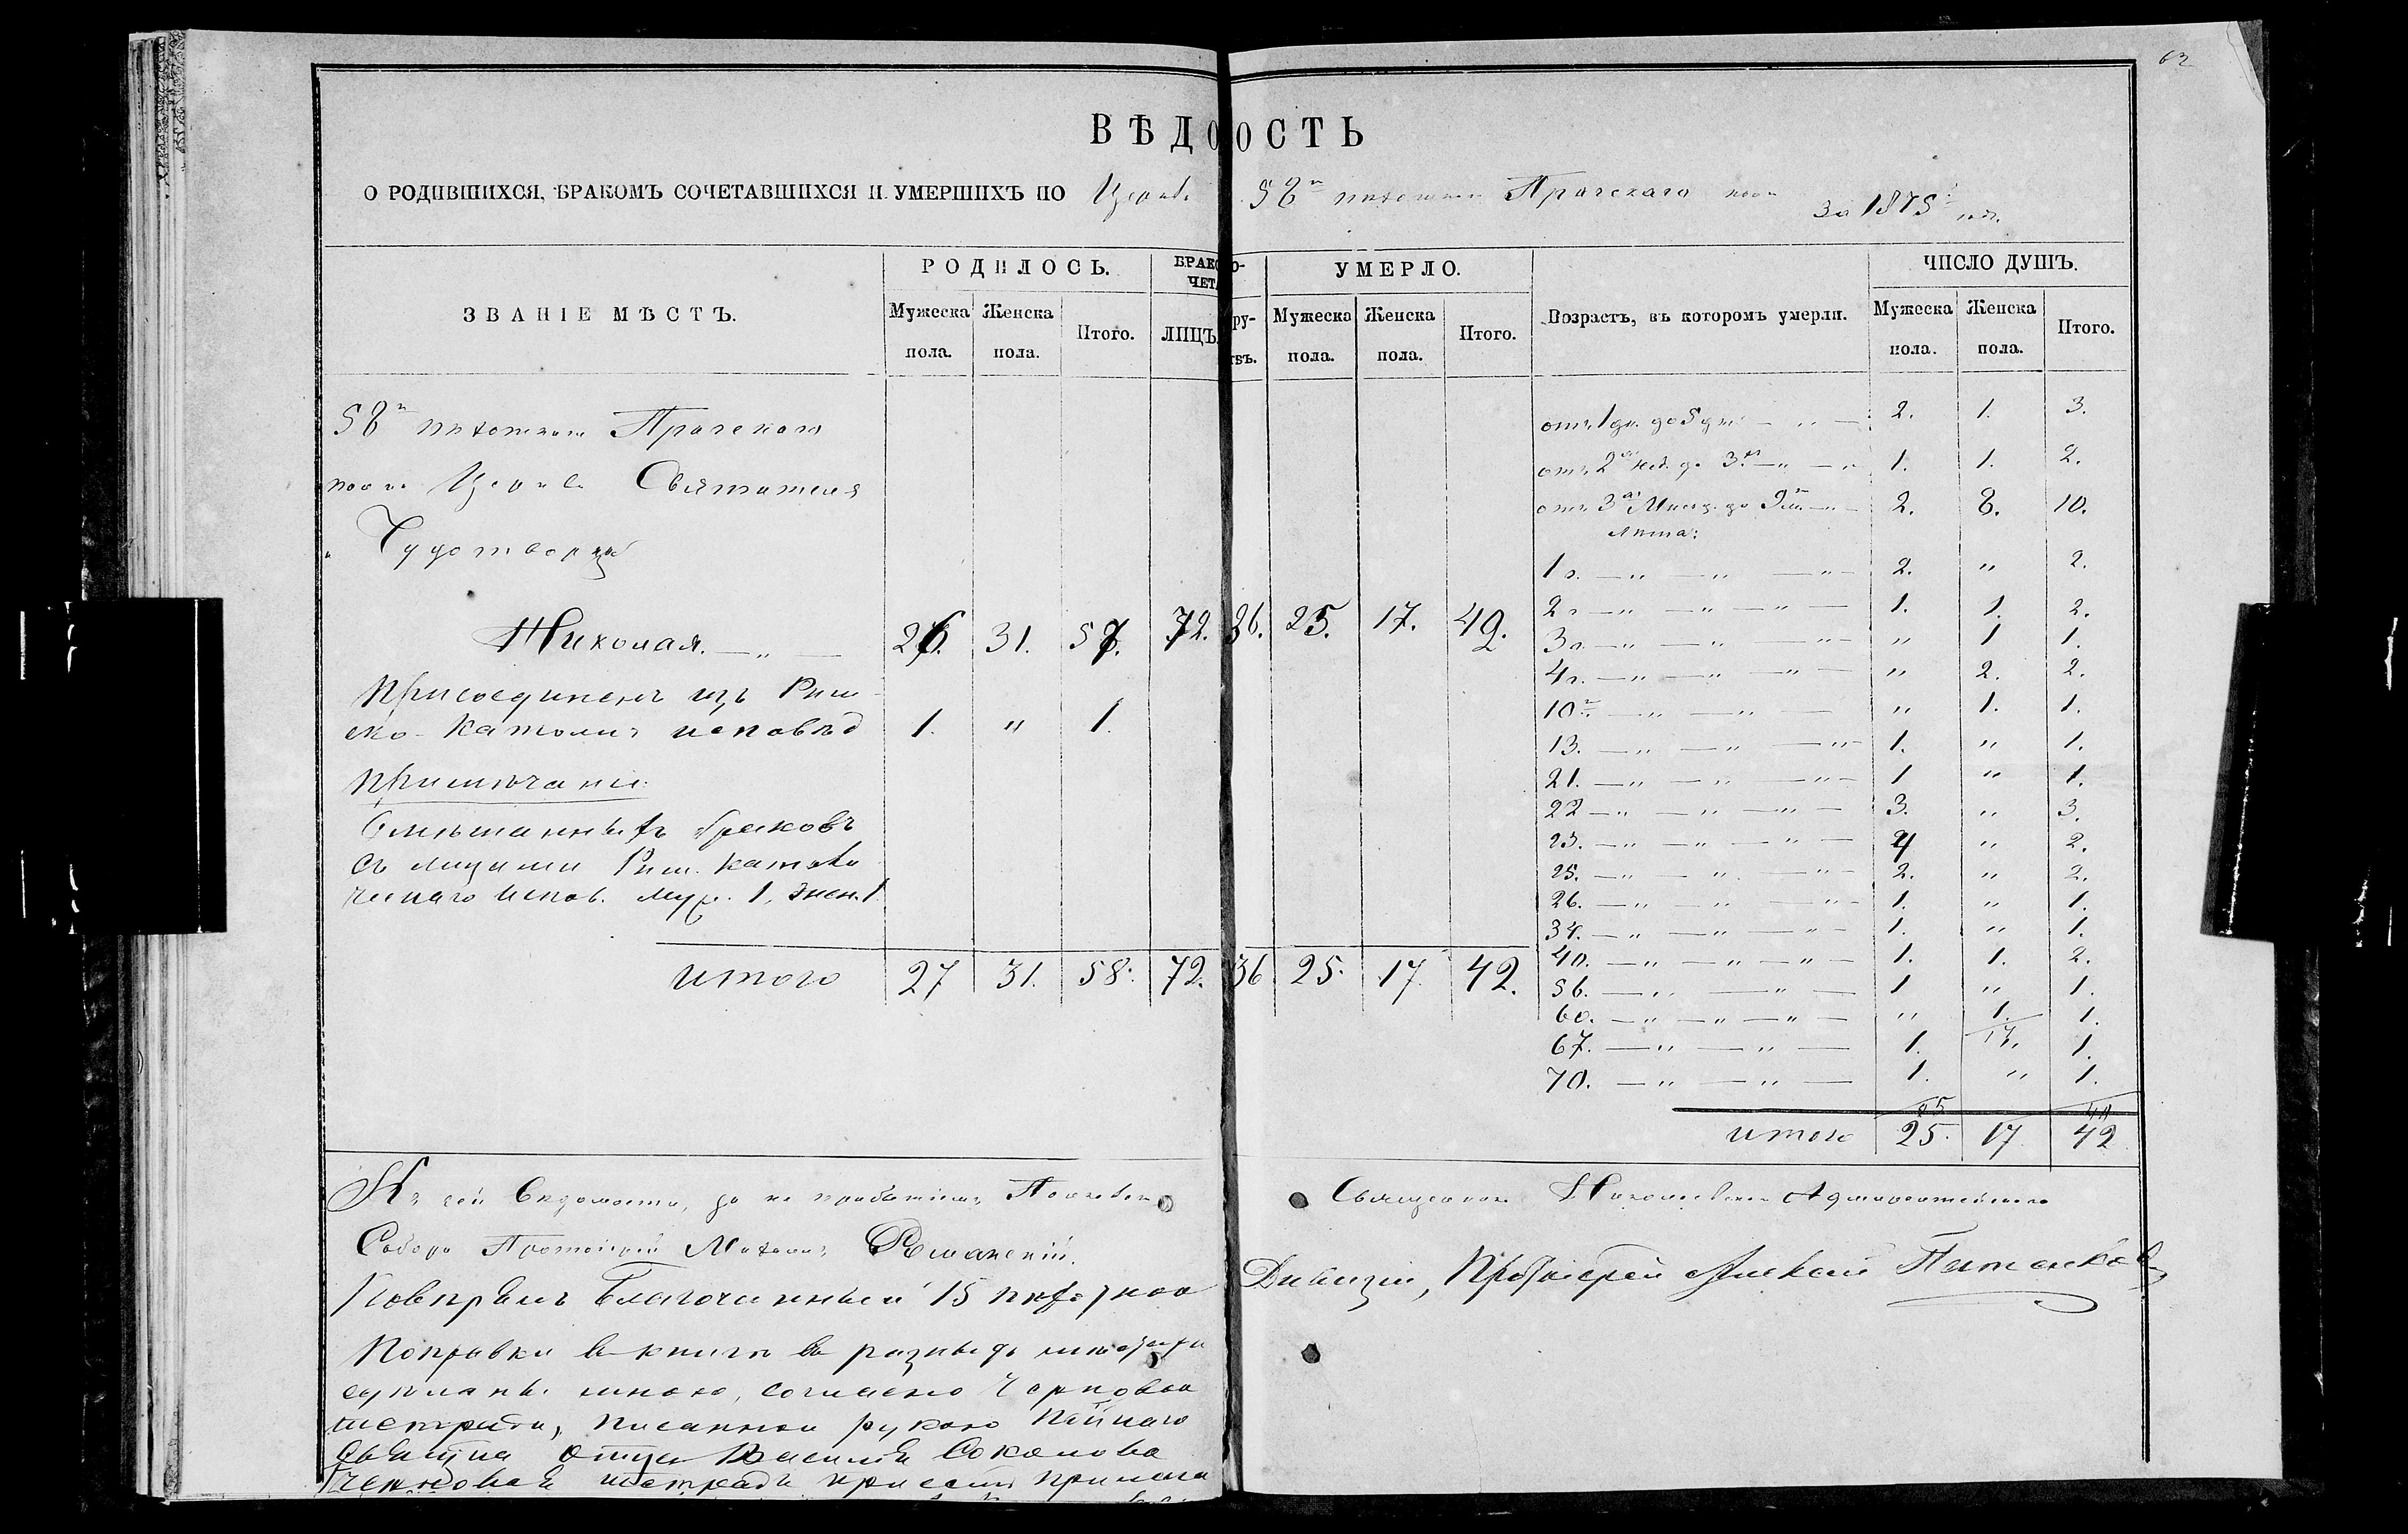 62
ВѢДООСТЬ
О РОДИВШИХСЯ, БРАКОМЪ СОЧЕТАВШИХСЯ И УМЕРШИХЪ ПО Церкви 58го пѣхотнаго Прагскаго полка За 1875й годъ.
ЗВАНІЕ МѢСТЪ.
РОДИЛОСЬ.
Мужеска пола.
Женска пола.
Итого.
ЛИЦЪ.
УМЕРЛО.
Мужеска пола.
Женска пола.
Итого.
Возрастъ, въ которомъ умерли.
ЧИСЛО ДУШЪ.
Мужеска пола.
Женска пола.
Итого.
58го пѣхотнаго Прагскаго
полка Церкви Святителя
Чудотворца
Николая. 26. 31. 57. 72. 36. 25. 17. 42.
Присоединенъ изъ Рим
ско-Католич исповѣд 1. " 1.
Примѣчаніе:
Смѣшанныхъ браковъ
съ лицами Рим. Католи
ческаго испов. муж. 1, жен. 1.
итого 27 31. 58. 72. 36 25. 17. 42.
отъ 1 дн. до 5 дн. 2. 1. 3.
отъ 2 нед. до 3. 1. 1. 2.
отъ 3 Мѣсяц. до 9 2. 8. 10.
Лѣта:
1 г. 2. " 2.
2 г. 1. 1. 2.
3 г. " 1 1.
4 г. " 2. 2.
10 " 1. 1.
13. 1. " 1.
21. 1 " 1.
22 3. " 3.
23. " 2.
25. 2. " 2.
26. 1. " 1.
34. 1. " 1.
40. 1. 1. 2.
56. 1 " 1.
60. " 1. 1.
67. 1. 17 " 1.
70. 1. " 1.
25 42
итого 25. 17. 42
Къ сей Вѣдомости, за не прибытіемъ Полковаго Священника Николаевскаго Адмиралтейскаго
Собора Протоіерей Михаилъ Романскій.
Повѣрялъ Благочинный 15 пѣхотной Дивизіи, Протоіерей Алексей
Поправки въ книгѣ въ разныхъ
сдѣланы мною, согласно Черновой
тетради, писанной рукою
отца Василія Соколова
тетрадь при семъ